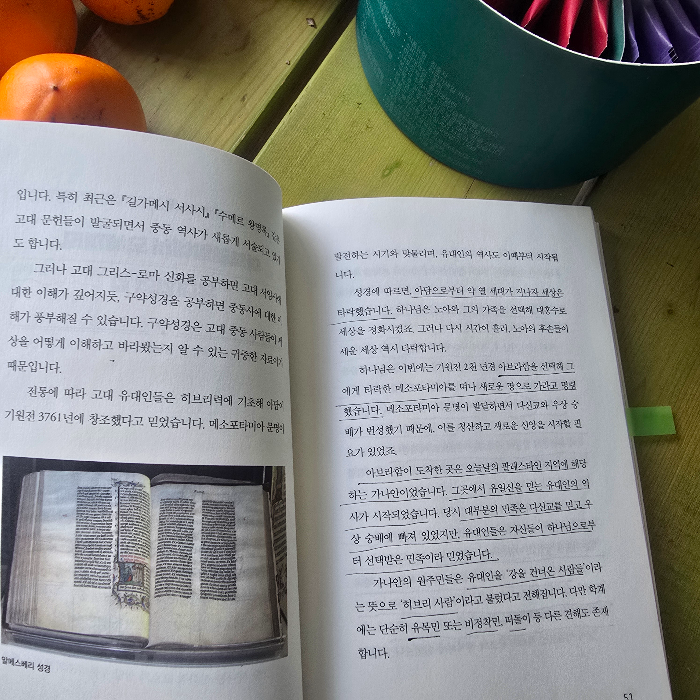 입니다. 특히 최근은 『길가메시 서사시』, 『수메르 왕명록』
고대 문헌들이 발굴되면서 중동 역사가 새롭게 서술되고
도 합니다.
그러나 고대 그리스-로마 신화를 공부하면 고대
대한 이해가 깊어지듯, 구약성경을 공부하면 중동사에 대한
해가 풍부해질 수 있습니다. 구약성경은 고대 중동 사람들이
상을 어떻게 이해하고 바라봤는지 알 수 있는 귀중한 자료이기
때문입니다.
전통에 따라 고대 유대인들은 히브리력에 기초해
기원전 3761년에 창조했다고 믿었습니다. 메소포타미아 문명이
맘메스베리 성경
발전하는 시기와 맞물리며, 유대인의 역사도 이때부터 시작됩
니다.
성경에 따르면, 아담으로부터 약 열 세대가 지나자 세상은
타락했습니다. 하나님은 노아와 그의 가족을 선택해 대홍수로
세상을 정화시켰죠. 그러나 다시 시간이 흘러, 노아의 후손들이
세운 세상 역시 타락합니다.
하나님은 이번에는 기원전 2천 년경 아브라함을 선택해 그
에게 타락한 메소포타미아를 떠나 새로운 땅으로 가라고 명령
했습니다. 메소포타미아 문명이 발달하면서 다신교와 우상 숭
배가 번성했기 때문에, 이를 청산하고 새로운 신앙을 시작할 필
요가 있었죠.
아브라함이 도착한 곳은 오늘날의 팔레스타인 지역에 해당
하는 가나안이었습니다. 그곳에서 유일신을 믿는 유대인의 역
사가 시작되었습니다. 당시 대부분의 민족은 다신교를 믿고 우
상 숭배에 빠져 있었지만, 유대인들은 자신들이 하나님으로부
터 선택받은 민족이라 믿었습니다.
가나안의 원주민들은 유대인을 '강을 건너온 사람들'이라
는 뜻으로 '히브리 사람'이라고 불렀다고 전해집니다. 다만 학계
에는 단순히 유목민 또는 비정착민, 떠돌이 등 다른 견해도 존재
합니다.